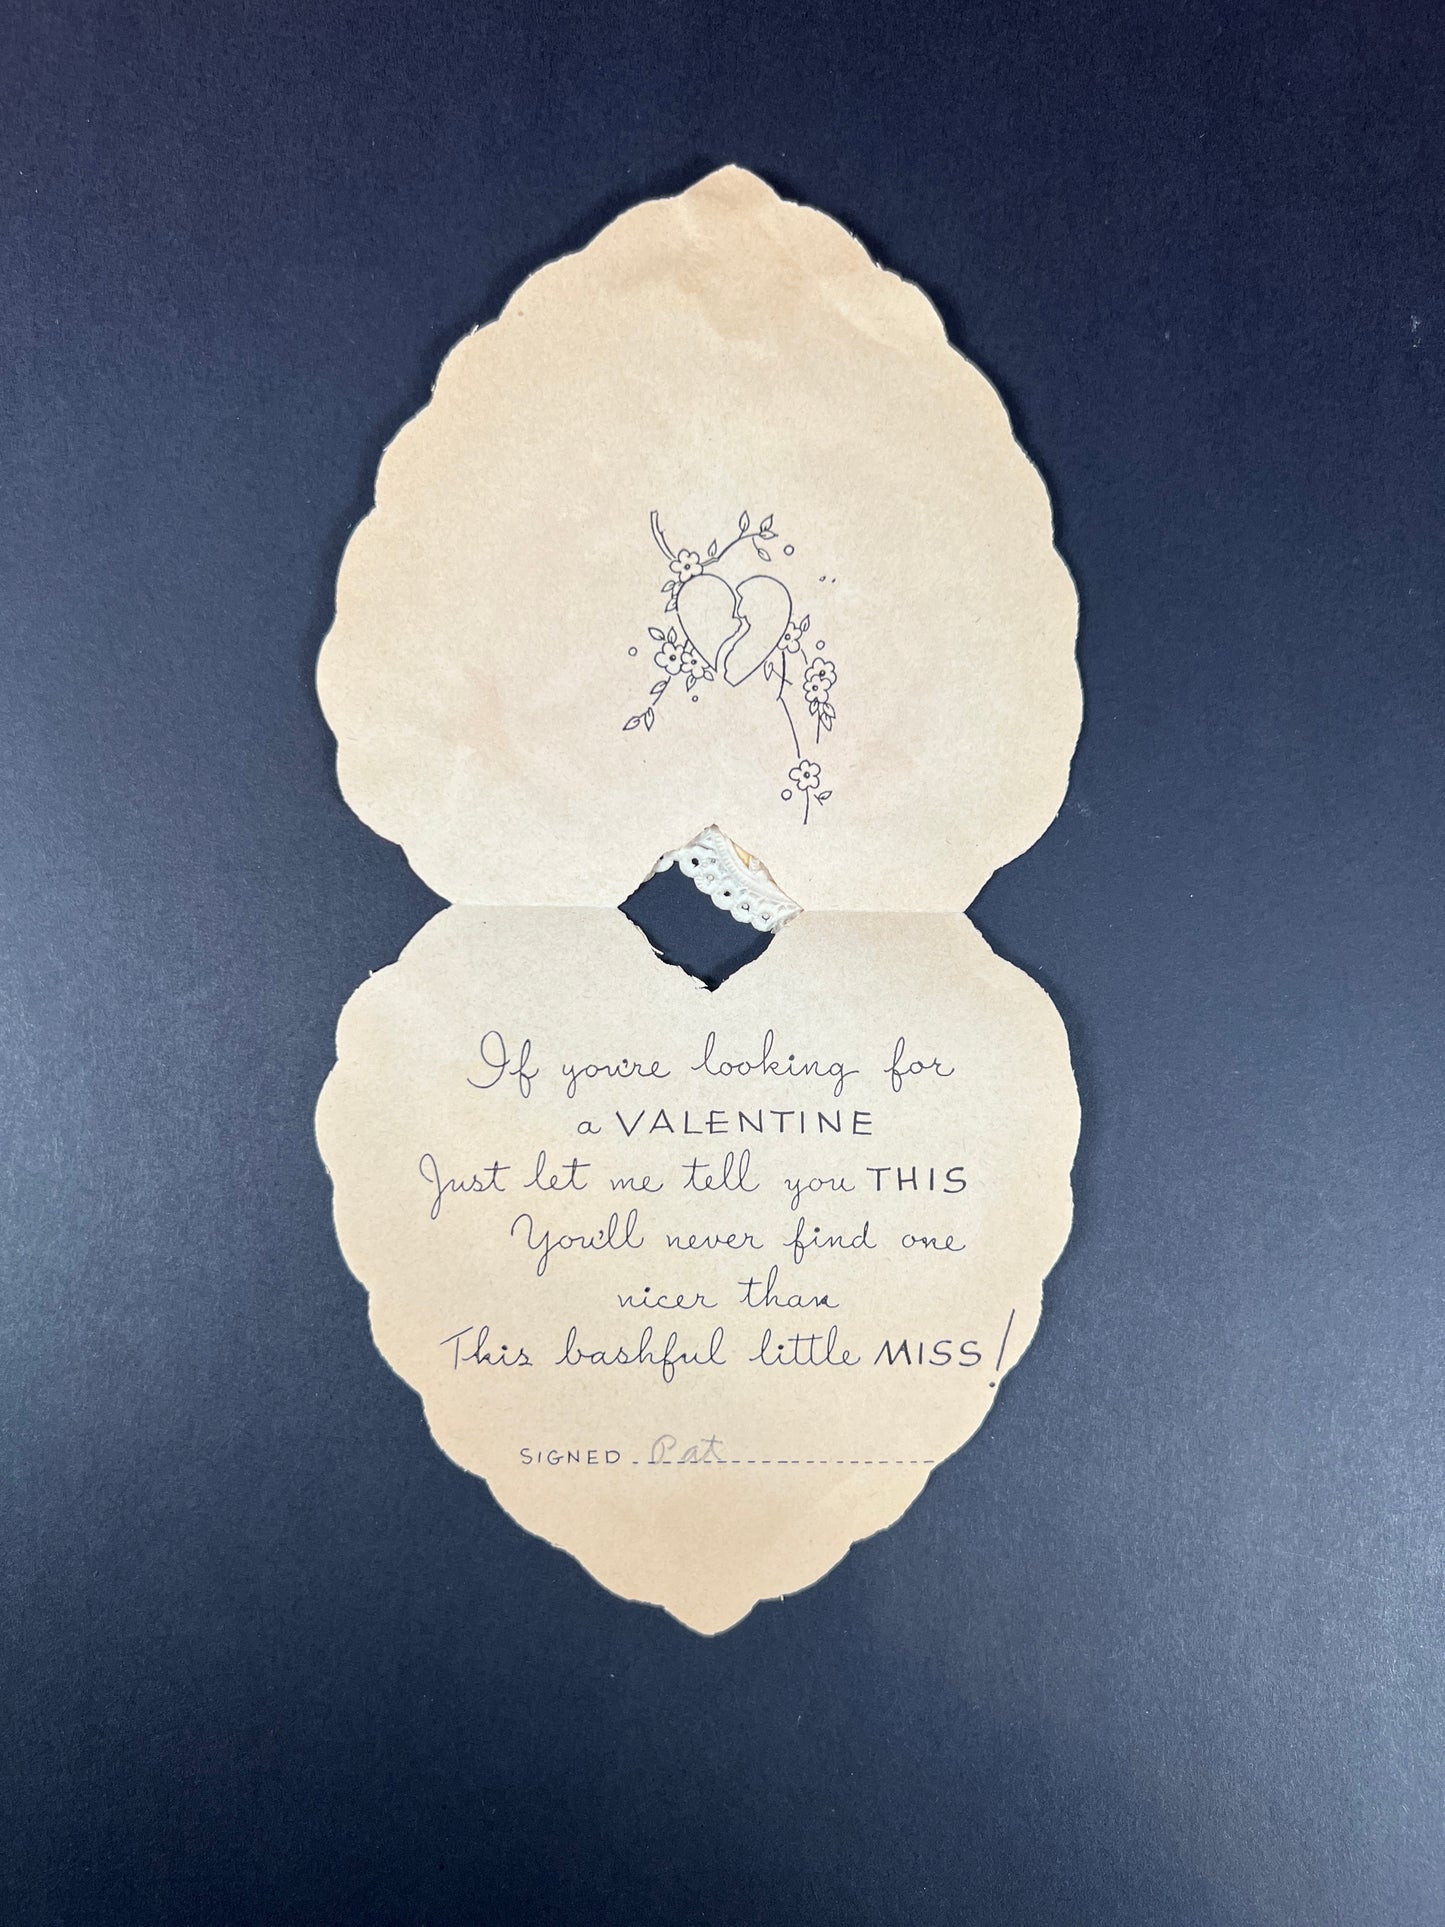 If you're looking for
a VALENTINE
Just let me tell you THIS
You'll never find one
nicer than
This bashful little MISS!
SIGNED Pat